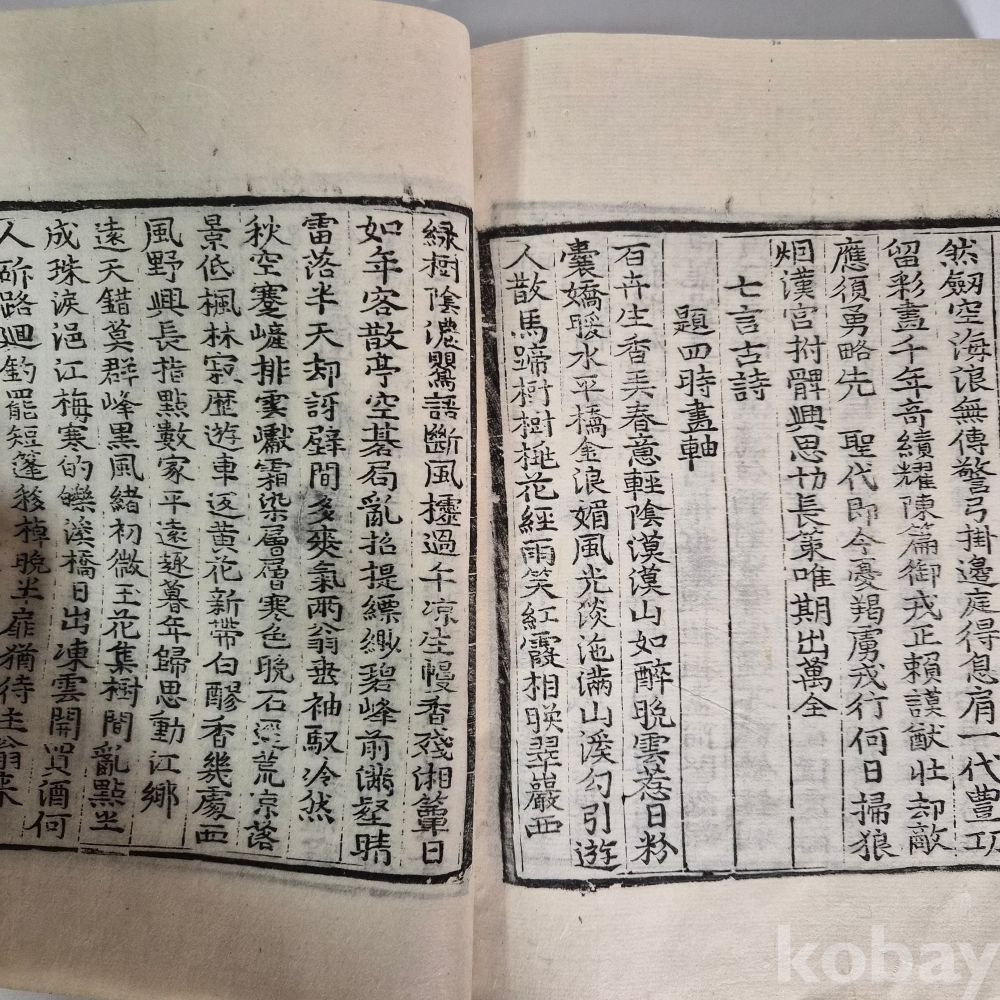 然劒空海浪無傳警弓掛邊庭得息肩一代豊功
留彩畫千年奇績耀陳篇御戎正賴謨猷壯却敵
應須勇略先 聖代即今憂羯虜戎行何日掃狼
烟漢宮拊髀興思切長策唯期出萬全
七言古詩
題四時畫軸
百卉生香弄春意輕陰漠漠山如醉晩雲惹日粉
囊嬌暖水平橋金浪媚風光淡沲滿山溪勾引遊
人散馬蹄樹樹桃花經雨笑紅霞相暎翠巖西
綠樹陰濃鸎語斷風欞過午凉生幔香殘湘簟日
如年客散亭空碁局亂招提縹緲碧峰前澗壑晴
雷落半天却訝壁間多爽氣兩翁垂袖馭冷然
秋空蹇嵼排雲巘霜染層層寒色晩石逕荒凉落
景低楓林寂歷遊車返黃花新帶白醪香幾處西
風野興長指點數家平遠趣暮年歸思動江鄉
遠天錯莫群峰黑風緖初微玉花集樹間亂點坐
成珠浹浥江梅寒的皪溪橋日出凍雲開買酒何
人酔路迴釣罷短篷移棹晩坐扉猶待主翁來
kobay